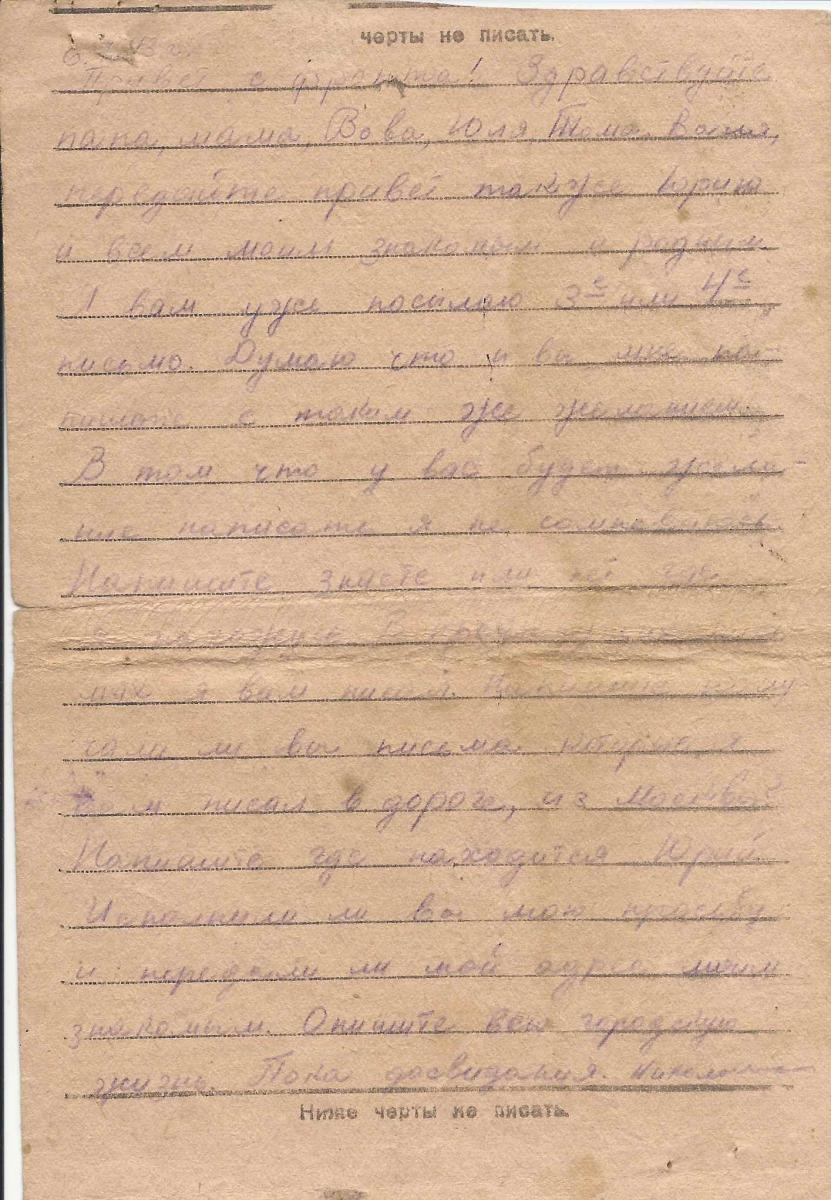 черты не писать.
Привет с фронта! Здравствуйте
папа, мама, Вова, Юля, Тома, Ваня,
передайте привет также Юрию
и всем моим знакомым и родным.
Я вам уже посылаю 3ᵉ или 4ᵉ
письмо. Думаю что и вы мне на-
пишите с таким же желанием.
В том что у вас будет жела-
ние написать я не сомневаюсь.
Напишите знаете или нет где
я нахожусь. В
мах я вам писал. Напишите полу-
чали ли вы письма которые я
вам писал в дороге, из Москвы.
Напишите где находится Юрий.
Исполнили ли вы мою просьбу
и передали ли мой адрес моим
знакомым. Опишите всю городскую
жизнь. Пока досвидания.
Ниже черты не писать.